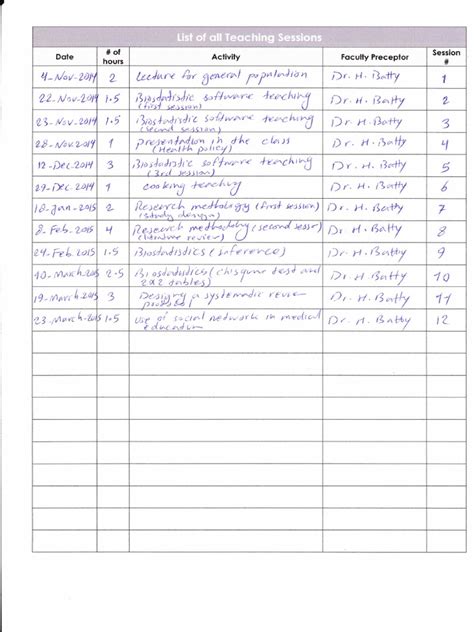 List of all Teaching Sessions
Date # of hours Activity Faculty Preceptor Session #
4-Nov-2014 2 Lecture for general population Dr. H. Batty 1
22-Nov-2014 1.5 Biostatistic software teaching Dr. H. Batty 2
(first session)
23-Nov-2014 1.5 Biostatistic software teaching Dr. H. Batty 3
(second session)
28-Nov-2014 1 presentation in the class Dr. H. Batty 4
(Health policy)
12-Dec-2014 3 Biostatistic software teaching Dr. H. Batty 5
(3rd session)
29-Dec-2014 1 cooking teaching Dr. H. Batty 6
Jan-2015 2 Research (first session) Dr. H. Batty 7
(study design)
8-Feb-2015 4 Research (second session) Dr. H. Batty 8
(literature review)
24-Feb-2015 1.5 Biostatistics (inference) Dr. H. Batty 9
10-March-2015 2.5 Biostatistics (chisquare test and Dr. H. Batty 10
2x2 tables)
19-March-2015 3 Designing a systematic review Dr. H. Batty 11
23-March-2015 1.5 Use of social network in medical Dr. H. Batty 12
education